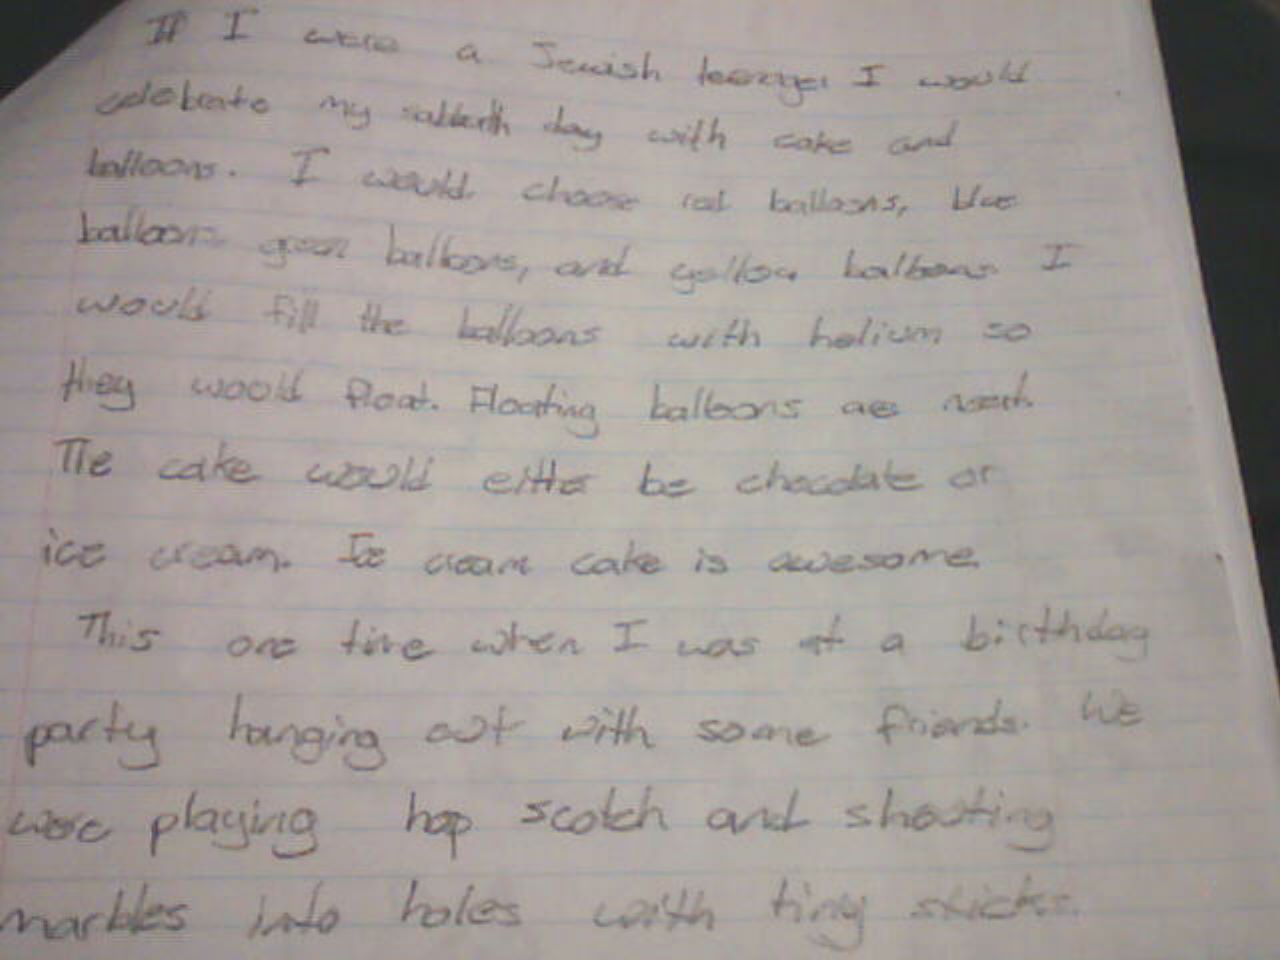 If I were a Jewish teenager I would
celebrate my sabbath day with cake and
balloons. I would choose red balloons, blue
balloons green balloons, and yellow balloons I
would fill the balloons with helium so
they woold float. Floating balloons are neat.
The cake would either be chocolate or
ice cream. Ice cream cake is awesome.
This one time when I was at a birthday
party hanging out with some friends. We
were playing hop scotch and shooting
marbles into holes with tiny sticks.